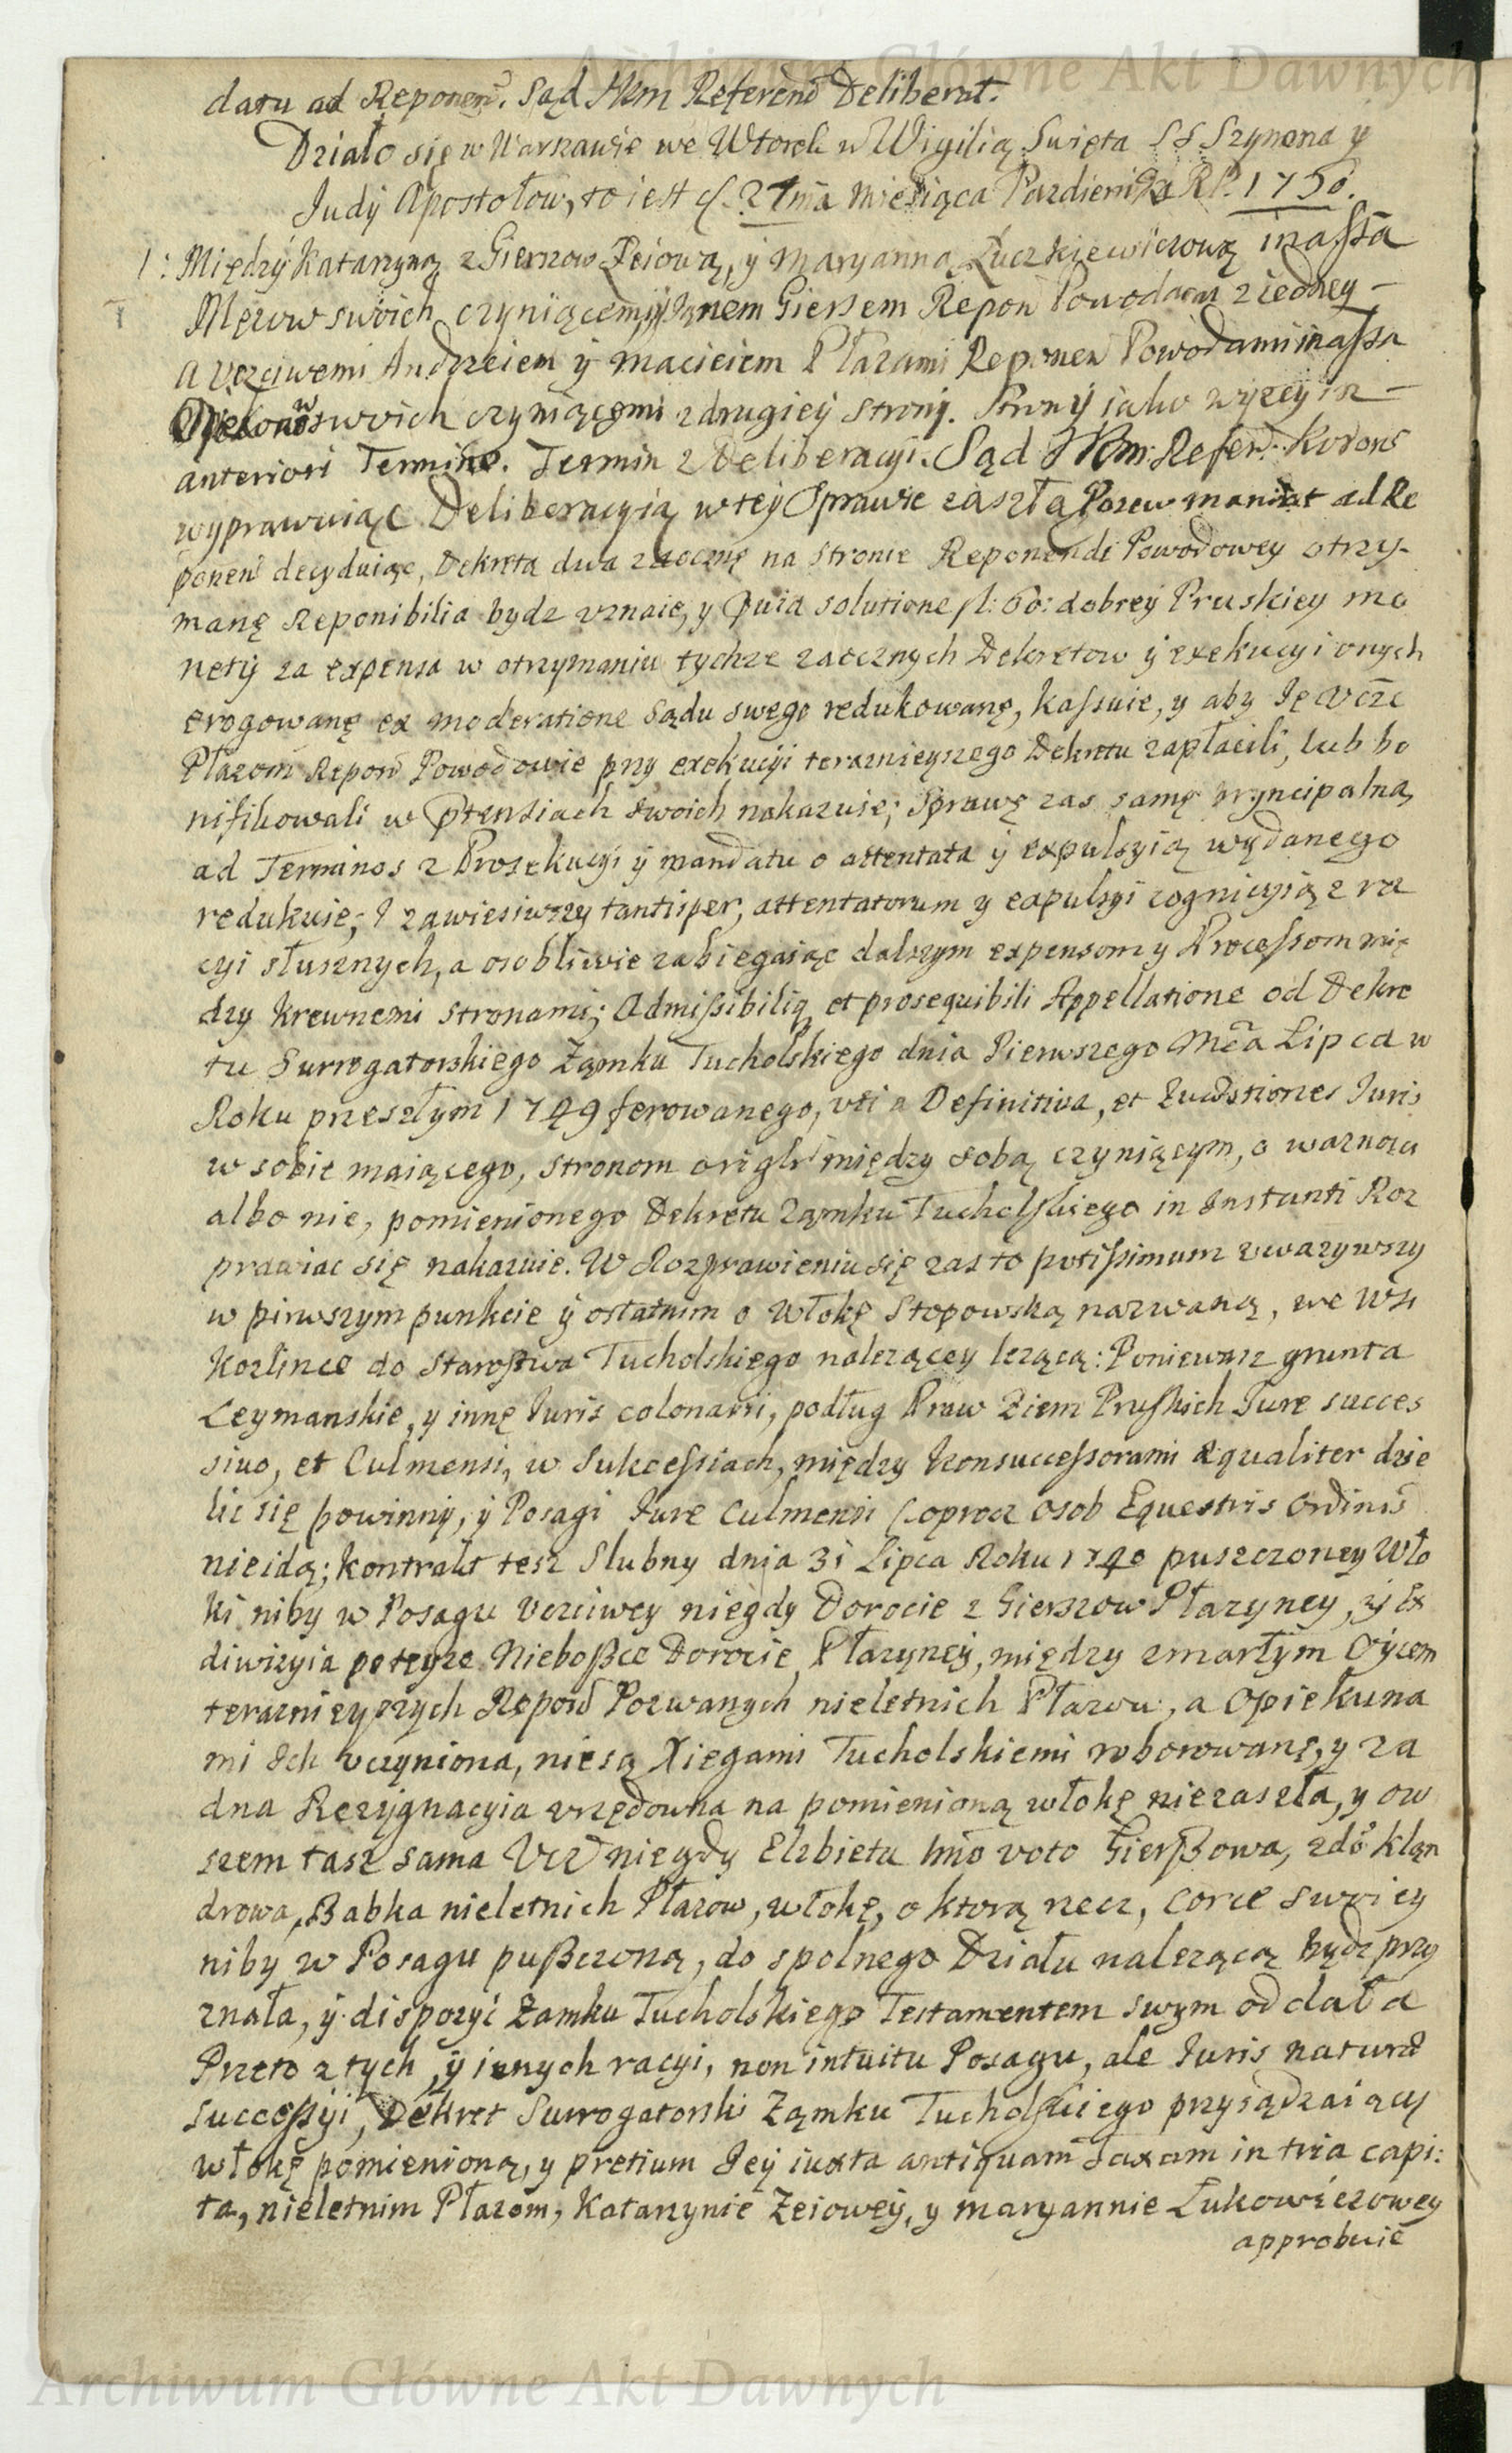 Archiwum Główne Akt Dawnych
datu ad Reponen̄. Sąd JKm Referend̄ Deliberat.
Działo się w Warszawie we Wtorek w Wigilią Swięta SS Szymona y
Judy Apostołow, to iest d. 27mā Miesiąca Pazdiernika RP. 1750.
1: Między Katarzyną z Gierszow Zeiową, y Maryanną Łuczkiewiczową in assā
Męzow swoich czyniącemi, y Janem Giersem Repon Powodami z iedney –
A Vczciwemi Andrzeiem y Macieiem Płazami Reponen Powodami in assa
Opiekonow swoich czyniącemi z drugiey strony. Strony iako wyzey in –
anteriori Termine. Termin z Deliberacyi. Sąd JKm. Refer̄: Korons
wyprawuiąc Deliberacyią w tey Sprawie zaszłą Pozew mandat ad Re
ponen̄ decyduiąc, Dekreta dwa zaocznę na stronie Reponendi Powodowey otrzy-
manę Reponibilia bydz vznaie, y Quia solutione fl: 60: dobrey Pruskiey mo
nety za expensa w otrzymaniu tychze zaocznych Dekretow y exekucyi onych
erogowanę ex moderatione Sądu swego redukowanę, kassuie, y aby Ję Vczc̄
Płazom Repon̄ Powodowie przy exekucyi teraznieyszego Dekretu zapłacili, lub bo
nifikowali w Ptensiach swoich nakazuie; Sprawę zas samę pryncipalną
ad Terminos z Prosekucyi y mandatu o attentata y expulsyią wydanego
redukuie; J zawiesiwszy tantisper, attentatorum y expulsyi cognicyią z ra
cyi słusznych, a osobliwie zabiegaiąc dalszym expensom y Processom mię
dzy krewnemi stronami; Admissibilią et prosequibili Appellatione od Dekre
tu Surrogatorskiego Zamku Tucholskiego dnia Pierwszego Mc̄a Lipca w
Roku przeszłym 1749 ferowanego, vti a Definitiva, et Quæstiones Juris
w sobie maiącego, stronom origlr̄ między sobą czyniącym, o waznosci
albo nie, pomienionego Dekretu Zamku Tucholskiego in Instanti Roz
prawiac się nakazuie. W Rozprawieniu się zas to potissimum vwazywszy
w pirwszym punkcie y ostatnim o Włokę Stopowską nazwaną, we Wsi
Kozlince do Starostwa Tucholskiego nalezącey lezącą: Poniewasz grunta
Leymanskie, y innę Juris colonarii, podług Praw Ziem Pruskich Jure succes
siuo, et Culmensi, w Sukcessiach, między konsuccessorami æqualiter dzie
lic się powinny, y Posagi Jure Culmensi (oprocz osob Equestris ordinis̄
nieidą; kontrakt tesz Slubny dnia 31 Lipca Roku 1740 puszczoney Wło
ki niby w Posagu Vczciwey niegdy Dorocie z Gierszow Płazyney, y Ex
diwizyia po teyze Nieboszce Dorocie Płazyney, między zmarłym Oycem
teraznieyszych Repon̄ Pozwanych nieletnich Płazow, a Opiekuna
mi Ich vczyniona, nie są Xięgami Tucholskiemi roborowanę, y za
dna Rezygnacyia vrzędowna na pomienioną włokę nie zaszła, y ow
szem tasz sama Vcz̄ niegdy Elzbieta 1mo voto Gierszowa, 2do Klan
drowa, Babka nieletnich Płazow, włokę, o ktorą rzecz, corce swoiey
niby w Posagu puszczoną, do spolnego Działu nalezącą bydz przy
znała, y dispozyc̄ Zamku Tucholskiego Testamentem swym oddała
Przeto z tych y innych racyi, non intuitu Posagu, ale Juris naturæ
Successyi, Dekret Surrogatorski Zamku Tucholskiego przysądzaiący
włokę pomienioną, y pretium Jey iuxta antiquam Taxam in tria capi:
ta, nieletnim Płazom, Katarzynie Zeiowey, y Maryannie Łukowiczowey
approbuie
Archiwum Główne Akt Dawnych